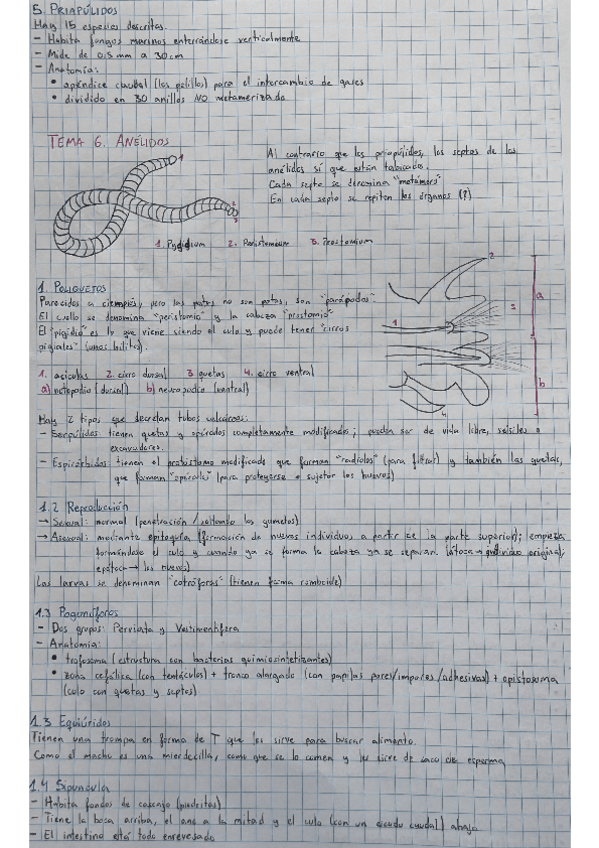 5. PRIAPÚLIDOS
Hay 15 especies descritas.
- Habita fangos marinos enterrándose verticalmente
- Mide de 0,5 mm a 30 cm
- Anatomía:
• apéndice caudal (los pelillos) para el intercambio de gases
• dividido en 30 anillos NO metamerizado
TEMA 6. ANÉLIDOS
Al contrario que los priapúlidos, los septos de los
anélidos sí que están tabicados.
Cada septo se denomina "metámero"
En cada septo se repiten los órganos (?)
1
2
3
1. Pygidium 2. Peristomium 3. Prostomium
1. POLIQUETOS
Parecidos a ciempiés, pero las patas no son patas, son "parápodos".
El cuello se denomina "peristomio" y la cabeza "prostomio"
El "pigidio" es lo que viene siendo el culo y puede tener "cirros
pigiales" (unos hilitos).
2
3
a
1
b
4
1. acículas 2. cirro dorsal 3 quetas 4. cirro ventral
a) notopodio (dorsal) b) neuropodio (ventral)
Hay 2 tipos que secretan tubos calcáreos:
- Serpúlidos: tienen quetas y opérculos completamente modificados; pueden ser de vida libre, sésiles o
excavadores.
- Espirórbidos: tienen el modificado que forman "radiolos" (para filtrar) y también las quetas,
que forman (para protegerse o sujetar los huevos)
1.2 Reproducción
→ Sexual: normal (penetración / soltando los gametos)
→ Asexual: mediante epitoquia (formación de nuevos individuos a partir de la parte superior); empieza
formándose el culo y cuando ya se forma la cabeza ya se separan. (átoca → individuo original;
epítoca → los nuevos)
Las larvas se denominan (tienen forma romboide)
1.3 Pogonóforos
- Dos grupos: Perviata y Vestimentifera
- Anatomía:
• trofosoma (estructura con bacterias quimiosintetizantes)
• zona cefálica (con tentáculos) + tronco alargado (con papilas pares/impares/adhesivas) + opistosoma
(culo con quetas y septos)
1.3 Equiúridos
Tienen una trompa en forma de T que les sirve para buscar alimento.
Como el macho es una mierdecilla, como que se lo comen y les sirve de saco de esperma
1.4 Sipuncula
- Habita fondos de cascajo (piedritas)
- Tiene la boca arriba, el ano a la mitad y el culo (con un escudo caudal) abajo
- El intestino está todo enrevesado